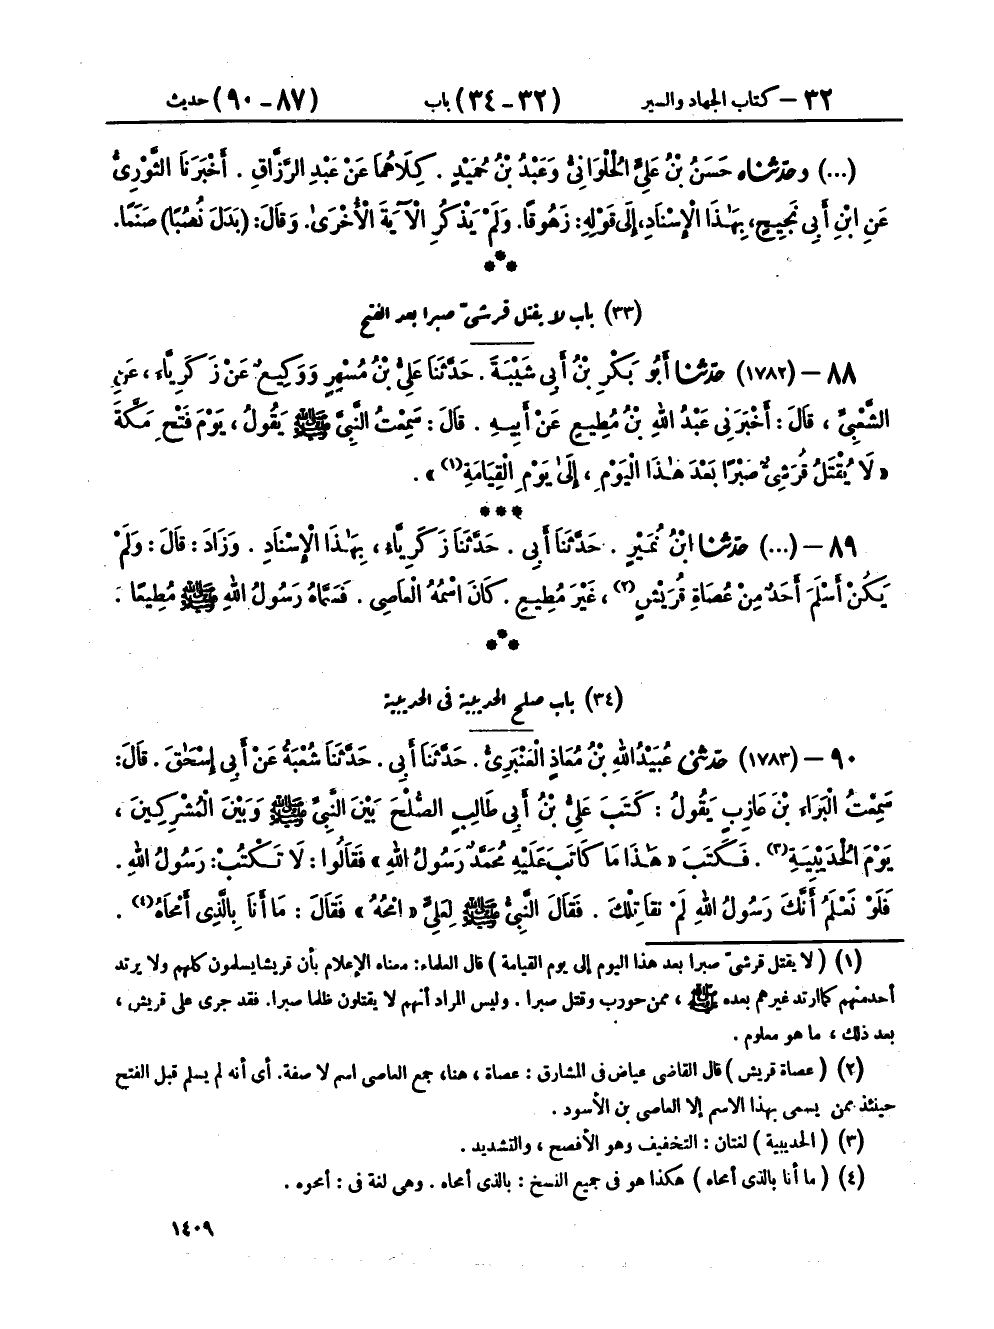 ٣٢ – كتاب الجهاد والسير (٣٢ – ٣٤) باب (٨٧ – ٩٠) حديث
(...) وحَدَّثَنَاه حَسَنُ بْنُ عَلِيٍّ الْحُلْوَانِيُّ وَعَبْدُ بْنُ حُمَيْدٍ . كِلَاهُمَا عَنْ عَبْدِ الرَّزَّاقِ . أَخْبَرَنَا الثَّوْرِيُّ
عَنِ ابْنِ أَبِي نَجِيحٍ، بِهَٰذَا الْإِسْنَادِ، إِلَى قَوْلِهِ: زَهُوقًا. وَلَمْ يَذْكُرِ الْآيَةَ الْأُخْرَىٰ. وَقَالَ: (بَدَلَ نُصُبًا) صَنَمًا.
(٣٣) باب لا يقتل قرشىّ صبرا بعد الفتح
٨٨ – (١٧٨٢) حَدَّثَنَا أَبُو بَكْرِ بْنُ أَبِي شَيْبَةَ . حَدَّثَنَا عَلِيُّ بْنُ مُسْهِرٍ وَوَكِيعٌ عَنْ زَكَرِيَّاءَ ، عَنِ
الشَّعْبِيِّ ، قَالَ : أَخْبَرَنِي عَبْدُ اللهِ بْنُ مُطِيعٍ عَنْ أَبِيهِ . قَالَ : سَمِعْتُ النَّبِيَّ ﷺ يَقُولُ ، يَوْمَ فَتْحِ مَكَّةَ
« لَا يُقْتَلُ قُرَشِيٌّ صَبْرًا بَعْدَ هَٰذَا الْيَوْمِ ، إِلَىٰ يَوْمِ الْقِيَامَةِ(١) » .
***
٨٩ – (...) حَدَّثَنَا ابْنُ نُمَيْرٍ . حَدَّثَنَا أَبِي . حَدَّثَنَا زَكَرِيَّاءُ ، بِهَٰذَا الْإِسْنَادِ . وَزَادَ : قَالَ : وَلَمْ
يَكُنْ أَسْلَمَ أَحَدٌ مِنْ عُصَاةِ قُرَيْشٍ(٢) ، غَيْرَ مُطِيعٍ . كَانَ اسْمُهُ الْعَاصِي . فَسَمَّاهُ رَسُولُ اللهِ ﷺ مُطِيعًا .
(٣٤) باب صلح الحديبية فى الحديبية
٩٠ – (١٧٨٣) حَدَّثَنِي عُبَيْدُ اللهِ بْنُ مُعَاذٍ الْعَنْبَرِيُّ . حَدَّثَنَا أَبِي . حَدَّثَنَا شُعْبَةُ عَنْ أَبِي إِسْحَٰقَ . قَالَ:
سَمِعْتُ الْبَرَاءَ بْنَ عَازِبٍ يَقُولُ : كَتَبَ عَلِيُّ بْنُ أَبِي طَالِبٍ الصُّلْحَ بَيْنَ النَّبِيِّ ﷺ وَبَيْنَ الْمُشْرِكِينَ ،
يَوْمَ الْحُدَيْبِيَةِ(٣) . فَكَتَبَ « هَٰذَا مَا كَاتَبَ عَلَيْهِ مُحَمَّدٌ رَسُولُ اللهِ » فَقَالُوا : لَا تَكْتُبْ: رَسُولُ اللهِ .
فَلَوْ نَعْلَمُ أَنَّكَ رَسُولُ اللهِ لَمْ نُقَاتِلْكَ . فَقَالَ النَّبِيُّ ﷺ لِعَلِيٍّ « امْحُهُ » فَقَالَ : مَا أَنَا بِالَّذِي أَمْحَاهُ(٤) .
(١) ( لا يقتل قرشىّ صبرا بعد هذا اليوم إلى يوم القيامة ) قال العلماء: معناه الإعلام بأن قريشا يسلمون كلهم ولا يرتد
أحد منهم كما ارتد غيرهم بعده ﷺ ، ممن حورب وقتل صبرا . وليس المراد أنهم لا يقتلون ظلما صبرا. فقد جرى على قريش ،
بعد ذلك ، ما هو معلوم .
(٢) ( عصاة قريش ) قال القاضى عياض فى المشارق : عصاة ، هنا، جمع العاصى اسم لا صفة. أى أنه لم يسلم قبل الفتح
حينئذ ممن يسمى بهذا الاسم إلا العاصى بن الأسود .
(٣) ( الحديبية ) لغتان : التخفيف وهو الأفصح ، والتشديد .
(٤) ( ما أنا بالذى أمحاه ) هكذا هو فى جميع النسخ : بالذى أمحاه . وهى لغة فى : أمحوه .
١٤٠٩